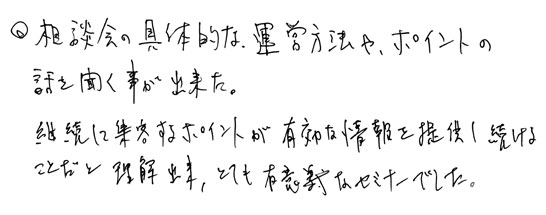 ◎相談会の具体的な、運営方法や、ポイントの
話を聞く事が出来た。
継続して集客するポイントが有効な情報を提供し続ける
ことだと理解出来、とても有意義なセミナーでした。